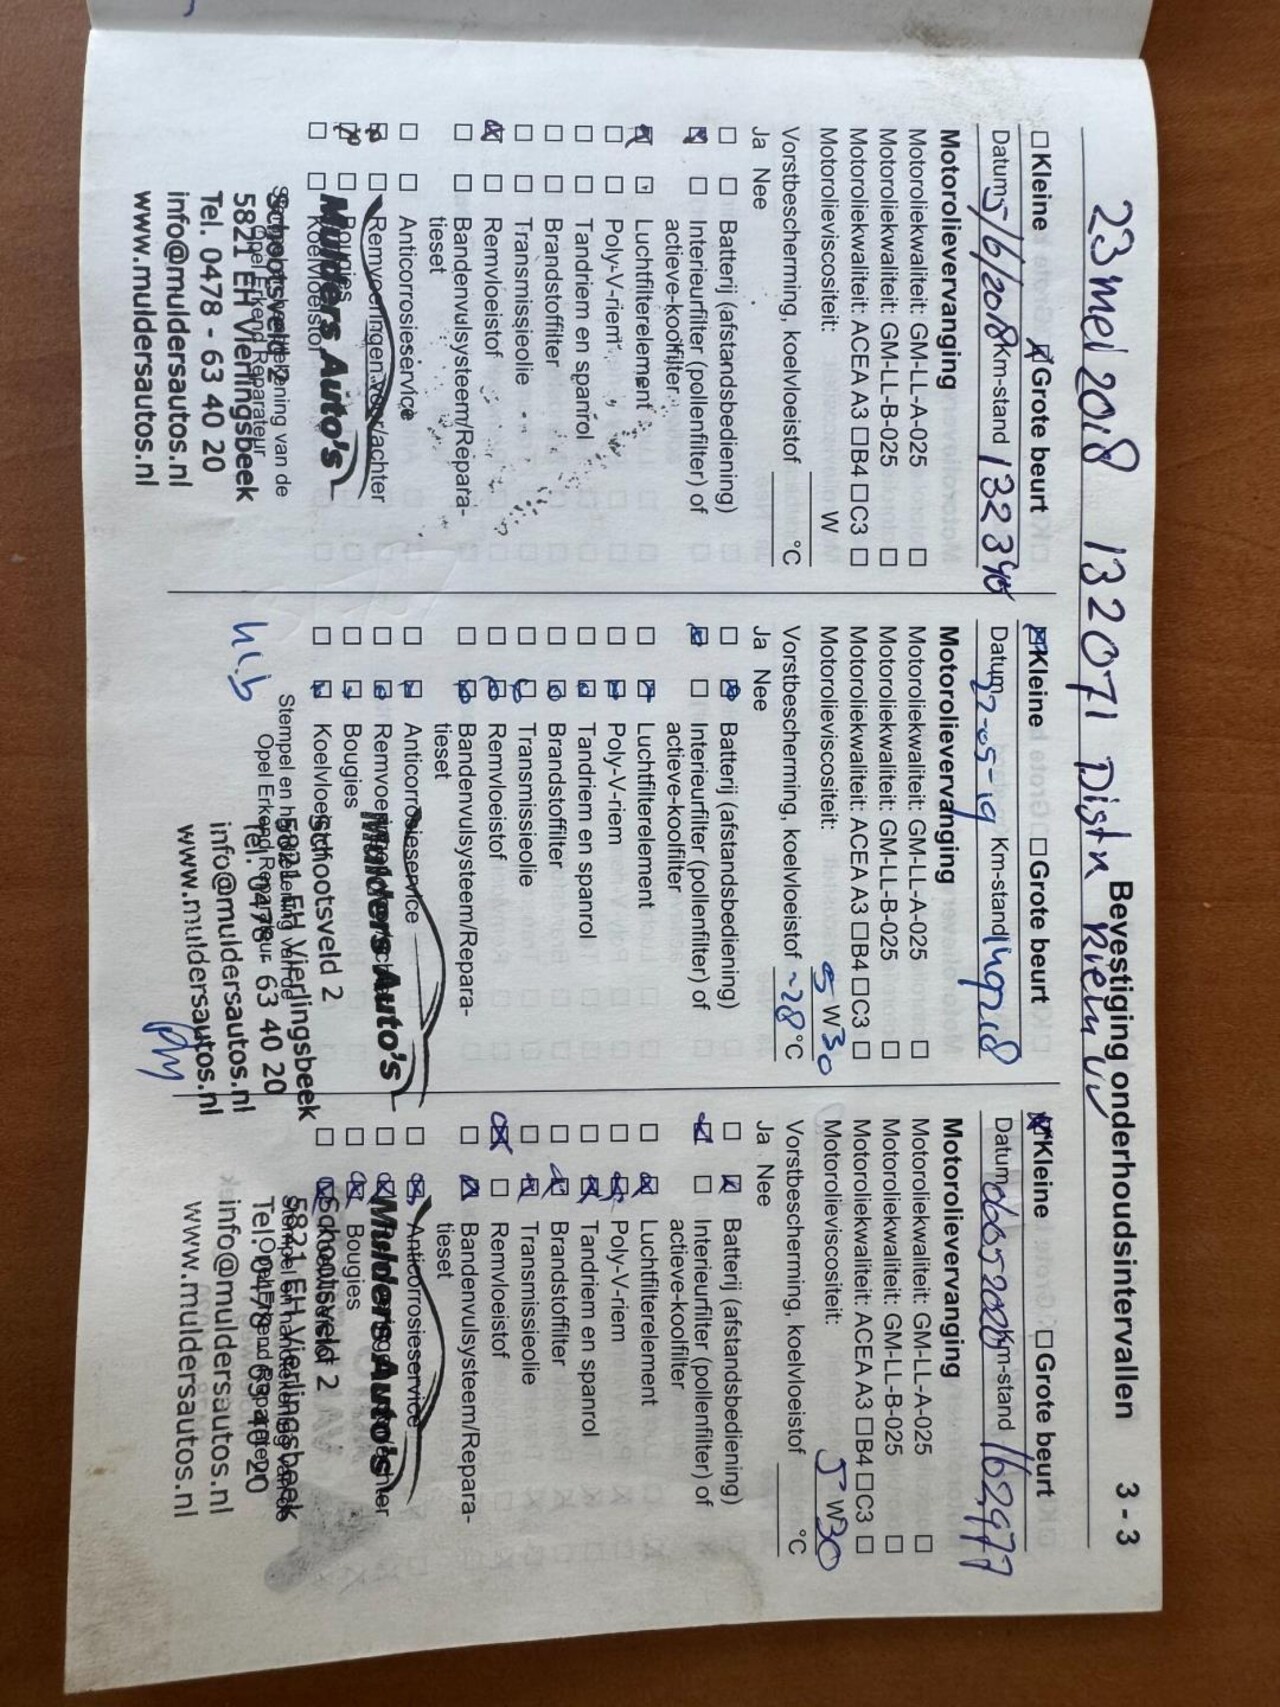 Bevestiging onderhoudsintervallen 3 - 3
23 mei 2018 132071 Distr Riem
Kleine Grote beurt
Datum 5/6/2018 Km-stand 132340
Motorolievervanging
Motoroliekwaliteit: GM-LL-A-025 ☐
Motoroliekwaliteit: GM-LL-B-025 ☐
Motoroliekwaliteit: ACEA A3 ☐B4 ☐C3 ☐
Motorolieviscositeit: W
Vorstbescherming, koelvloeistof °C
Ja Nee
Batterij (afstandsbediening)
Interieurfilter (pollenfilter) of
actieve-koolfilter
Luchtfilterelement
Poly-V-riem
Tandriem en spanrol
Brandstoffilter
Transmissieolie
Remvloeistof
Bandenvulsysteem/Repara-
tieset
Anticorrosieservice
Remvoeringen voor/achter
Bougies
Koelvloeistof
Mulders Auto's
Schootsveld 2
5821 EH Vierlingsbeek
Opel Erkend Reparateur
Tel. 0478 - 63 40 20
info@muldersautos.nl
www.muldersautos.nl
Kleine ☐ Grote beurt
Datum Km-stand
Motorolievervanging
Motoroliekwaliteit: GM-LL-A-025 ☐
Motoroliekwaliteit: GM-LL-B-025 ☐
Motoroliekwaliteit: ACEA A3 ☐B4 ☐C3 ☐
Motorolieviscositeit: 5 W30
Vorstbescherming, koelvloeistof -28 °C
Ja Nee
Batterij (afstandsbediening)
Interieurfilter (pollenfilter) of
actieve-koolfilter
Luchtfilterelement
Poly-V-riem
Tandriem en spanrol
Brandstoffilter
Transmissieolie
Remvloeistof
Bandenvulsysteem/Repara-
tieset
Anticorrosieservice
Bougies
Koelvloeistof
Mulders Auto's
Schootsveld 2
5821 EH Vierlingsbeek
Stempel en handtekening van de
Opel Erkend Reparateur
Tel. 0478 - 63 40 20
info@muldersautos.nl
www.muldersautos.nl
Kleine ☐ Grote beurt
Datum Km-stand 162977
Motorolievervanging
Motoroliekwaliteit: GM-LL-A-025 ☐
Motoroliekwaliteit: GM-LL-B-025 ☐
Motoroliekwaliteit: ACEA A3 ☐B4 ☐C3 ☐
Motorolieviscositeit: 5 W30
Vorstbescherming, koelvloeistof °C
Ja Nee
Batterij (afstandsbediening)
Interieurfilter (pollenfilter) of
actieve-koolfilter
Luchtfilterelement
Poly-V-riem
Tandriem en spanrol
Brandstoffilter
Transmissieolie
Remvloeistof
Bandenvulsysteem/Repara-
tieset
Anticorrosieservice
Bougies
Mulders Auto's
Schootsveld 2
5821 EH Vierlingsbeek
Tel. 0478 - 63 40 20
info@muldersautos.nl
www.muldersautos.nl